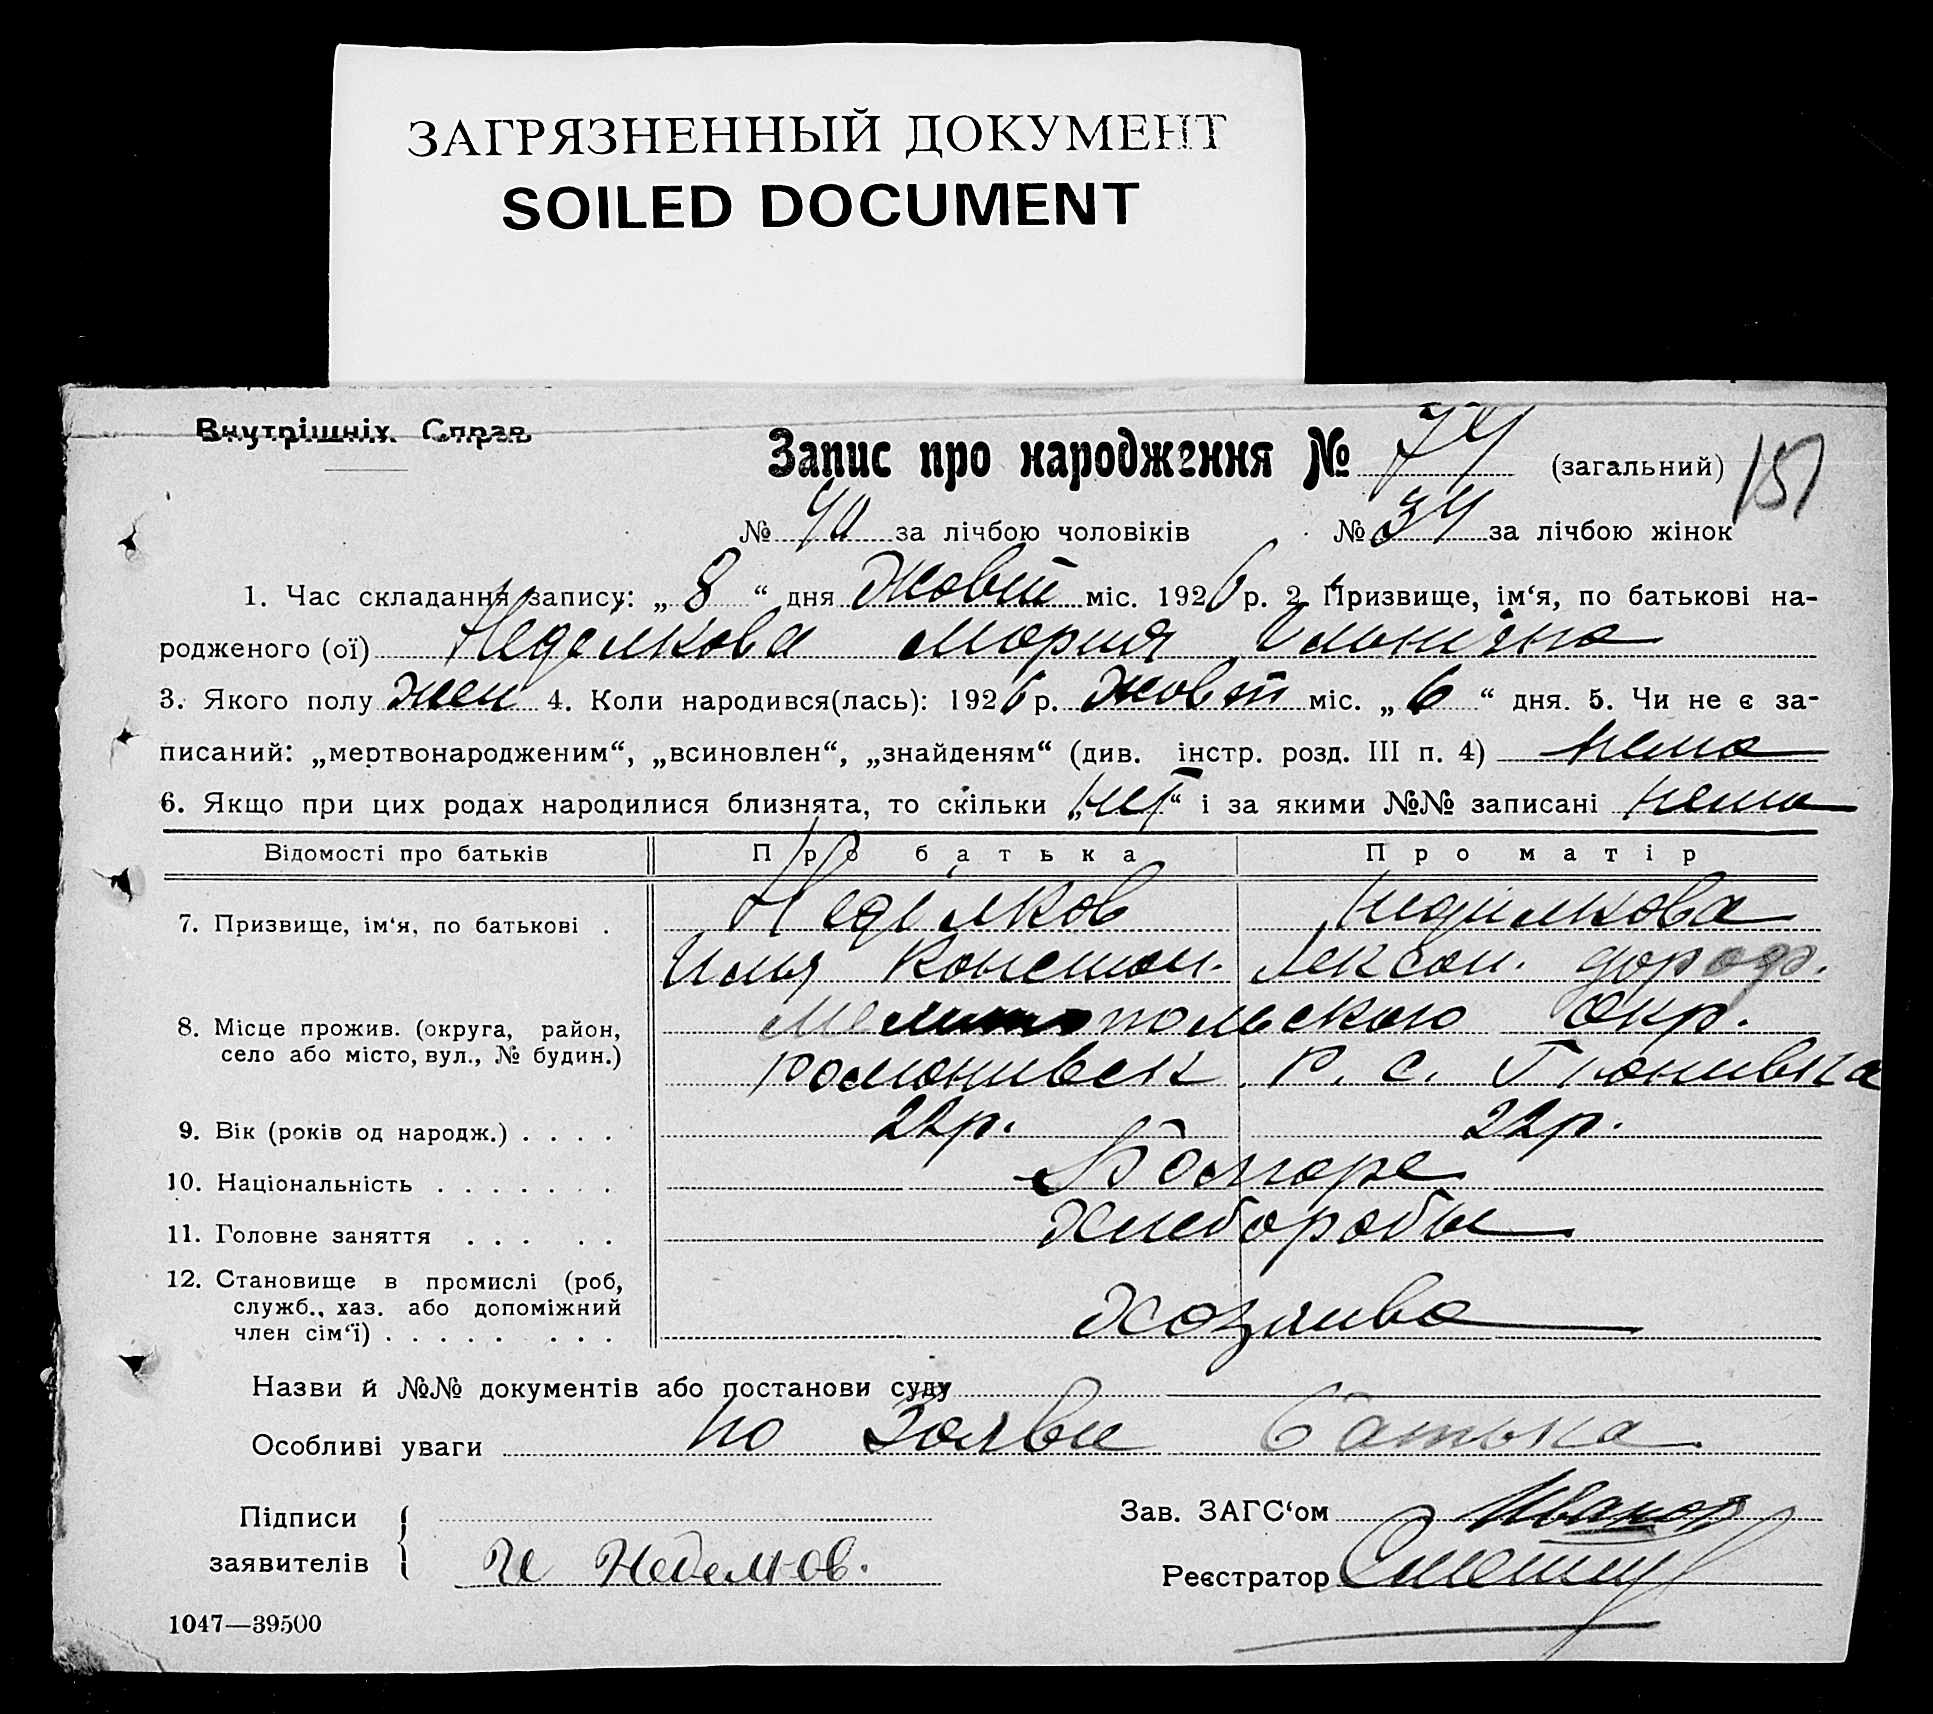 ЗАГРЯЗНЕННЫЙ ДОКУМЕНТ
SOILED DOCUMENT
Внутрішніх Справ
Запис про народження № 74 (загальний) 151
№ 40 за лічбою чоловіків № 34 за лічбою жінок
1. Час складання запису: „ 8 “ дня Жовт міс. 1926 р. 2. Призвище, ім‘я, по батькові на-
родженого (ої) Неделкова Мария Ильнична
3. Якого полу жен 4. Коли народився(лась): 1926 р. жовт міс. „ 6 “ дня. 5. Чи не є за-
писаний: „мертвонародженим“, „всиновлен“, „знайденям“ (див. інстр. розд. III п. 4) нема
6. Якщо при цих родах народилися близнята, то скільки „нет“ і за якими №№ записані нема
Відомості про батьків Про батька Про матір
7. Призвище, ім‘я, по батькові . Неділков Неділкова
Илья Констан. Лександ. дороф.
8. Місце прожив. (округа, район, Мелитопольскою Окр.
село або місто, вул., № будин.) Романивск Р. с. Гюнивка
9. Вік (років од народж.) . . . . 22р. 22р.
10. Національність . . . . . . . Болгаре
11. Головне заняття . . . . . Хлебороби
12. Становище в промислі (роб,
служб., хаз. або допоміжний
член сім‘ї) . . . . . . . . Хозяива
Назви й №№ документів або постанови суду
Особливі уваги по Заяви батька
Підписи
заявителів И Неделков.
Зав. ЗАГС‘ом Иванов
Реєстратор
1047—39500